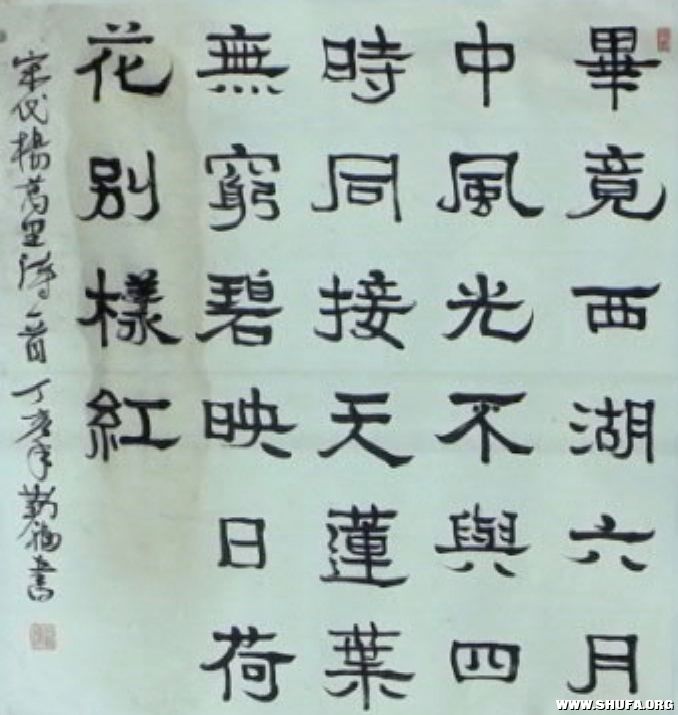 畢竟西湖六月
中風光不與四
時同接天蓮葉
無窮碧映日荷
花別樣紅
宋代楊萬里詩一首 丁亥年 福書
WWW.SHUFA.ORG